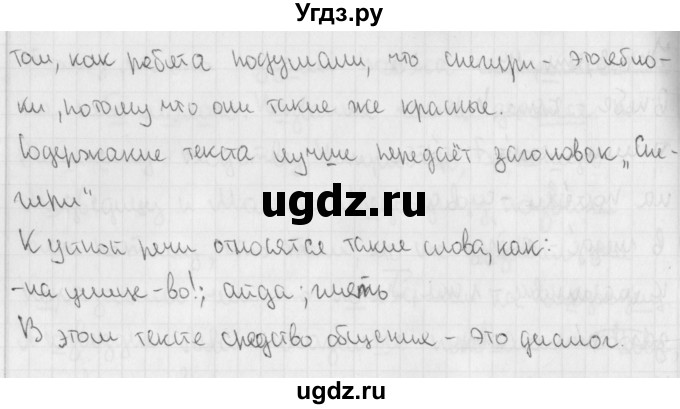 Угдз.ру
том, как ребята подумали, что снегири - это ябло-
ки, потому что они такие же красные.
Содержание текста лучше передаёт заголовок „Сне-
гири“
ugdz.ru
К устной речи относятся такие слова, как:
-на улице -во!; айда; глядь
В этом тексте средство общения - это диалог.
ugdz.ru